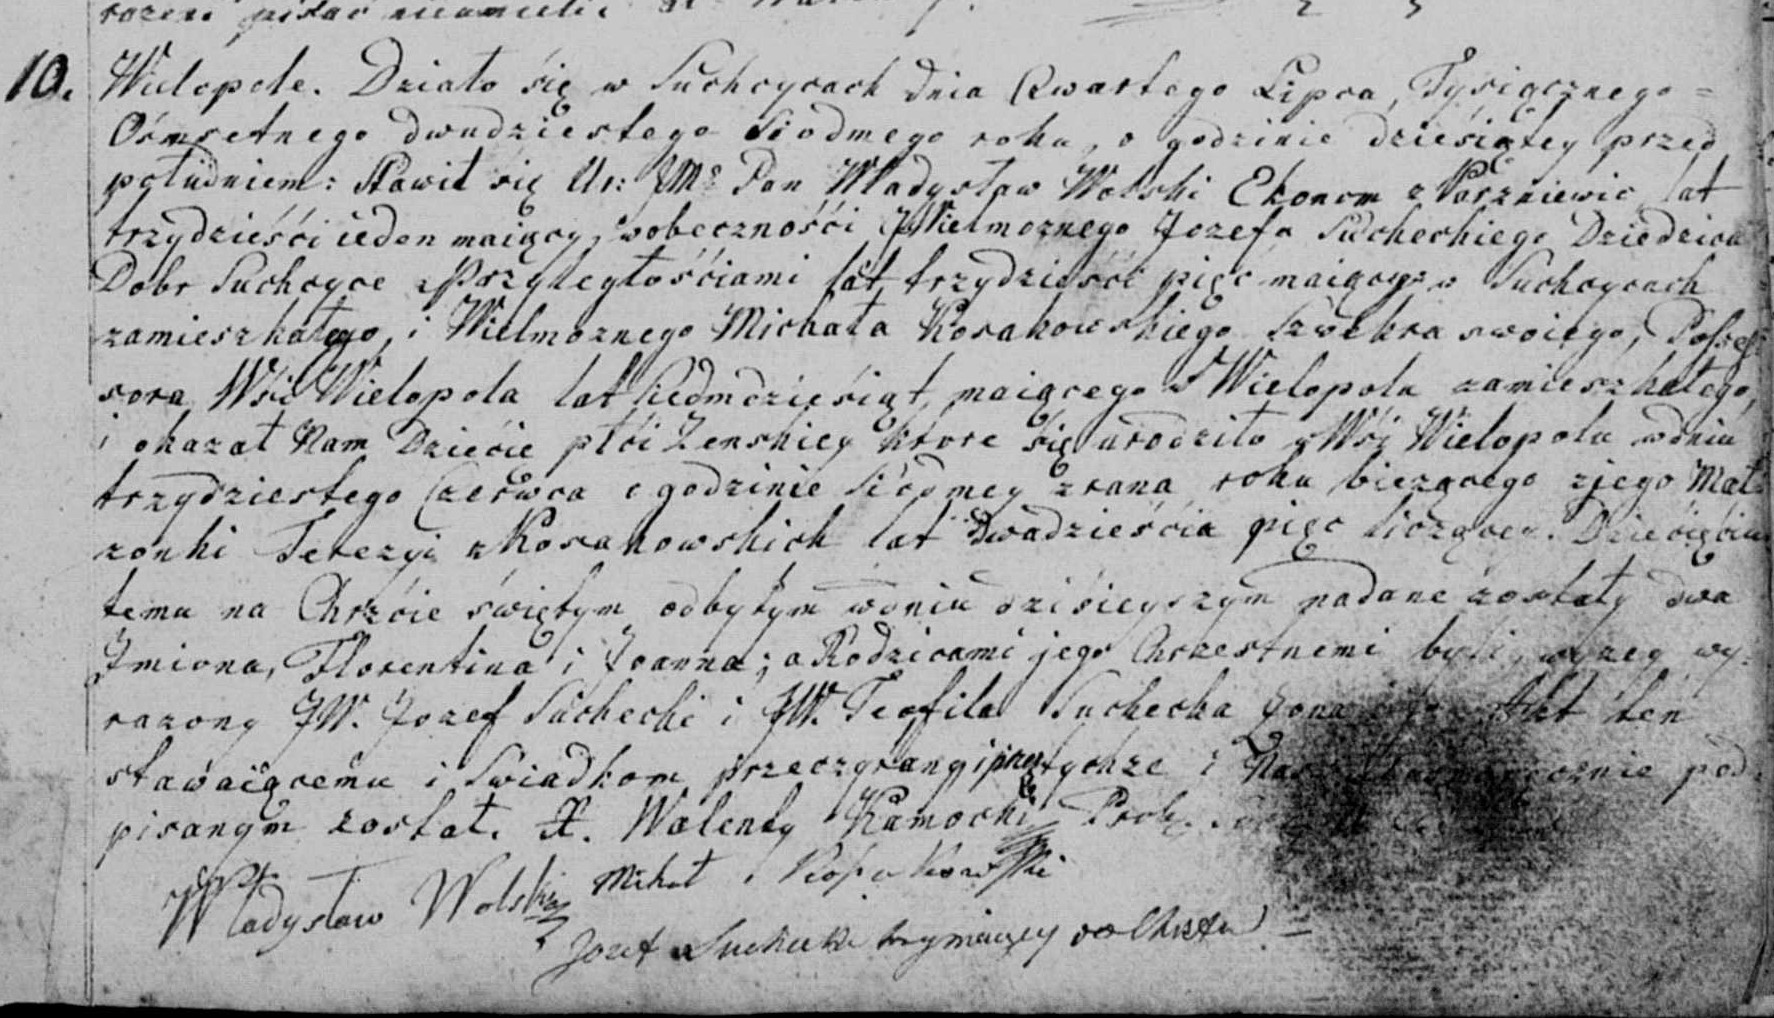 rozeni pisać nieumieli
10. Wielopole. Działo się w Suchcycach dnia Czwartego Lipca, Tysiącznego =
Ośmsetnego dwudziestego Siodmego roku, o godzinie dziesiątey przed
południem: Stawił się Ur: JMć Pan Władysław Wolski Ekonom z Parzniewic lat
trzydzieśći ieden maiący, wobecznośći JWielmoznego Jozefa Suchechiego Dziedzica
Dobr Suchcyce z Przyległośćiami lat trzydzieśći pięć maiącego w Suchcycach
zamieszkałego, i Wielmoznego Michała Kosakowskiego Szwekra swoiego, Posses
sora Wśi Wielopola lat siedmdzieśiąt, maiącego w Wielopolu zamieszkałego,
i okazał Nam Dziećie płći Zenskiey ktore się urodziło w Wśi Wielopolu wdniu
trzydziestego Czerwca o godzinie Siodmey zrana roku biezącego zjego Mał
zonki Terezyi z Kosakowskich lat dwadzieśćia pięć liczącey. Dziećięćiu
temu na Chrzćie świętym odbytym wdniu dzisieyszym nadane zostały dwa
Imiona, Florentina i Joanna; a Rodzicami jego Chrzestnemi byli, wyzey wy-
razony JW. Jozef Suchecki i JW. Teofila Suchecka Zona Akt ten
stawaiącemu i Swiadkom przeczytany i przez tychze i pod-
pisanym został. X. Walenty Kamocki Prob.
Władysław Wolski Michał Kossakowski
Jozef Suchecki trzymaiący do Chrztu